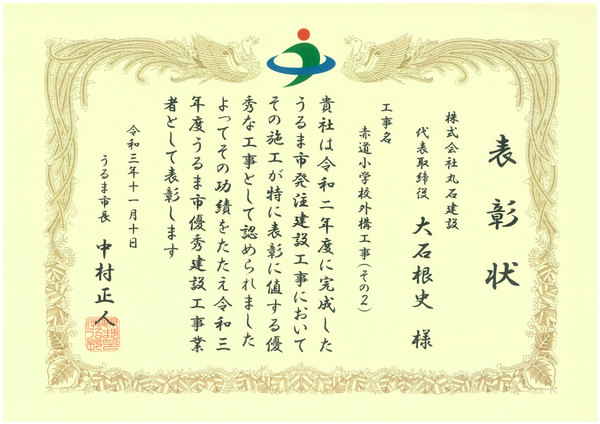 表彰状
株式会社丸石建設
代表取締役 大石根史 様
工事名
赤道小学校外構工事(その2)
貴社は令和二年度に完成した
うるま市発注建設工事において
その施工が特に表彰に値する優
秀な工事として認められました
よってその功績をたたえ令和三
年度うるま市優秀建設工事業
者として表彰します
令和三年十一月十日
うるま市長 中村正人